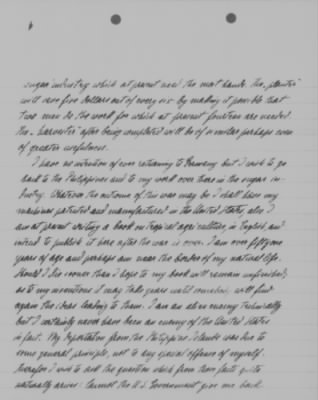 sugar industry which at present need the most hands. The "planter"
will save five dollars out of every six by making it possible that
two men do the work for which at present fourteen are needed.
The "harvester" after being completed will be of similar perhaps even
of greater usefulness.
I have no intention of ever returning to Germany but I wish to go
back to the Philippines and to my work over there in the sugar in-
dustry. Whatever the outcome of this war may be I shall have my
machines patented and manufactured in the United States, also I
am at present writing a book on tropical agriculture, in English, and
intend to publish it here after the war is over. I am over fifty one
years of age and perhaps am near the border of my natural life.
Should I die sooner than I hope to my book will remain unfinished;
as to my inventions it may take years until somebody will find
again the ideas leading to them. I am an alien enemy technically
but I certainly never have been an enemy of the United States
in fact. My deportation from the Philippine Islands was due to
some general principle, not to any special offense of myself.
Therefore I wish to ask the question which from these facts quite
naturally arises: Cannot the U.S. Government give me back